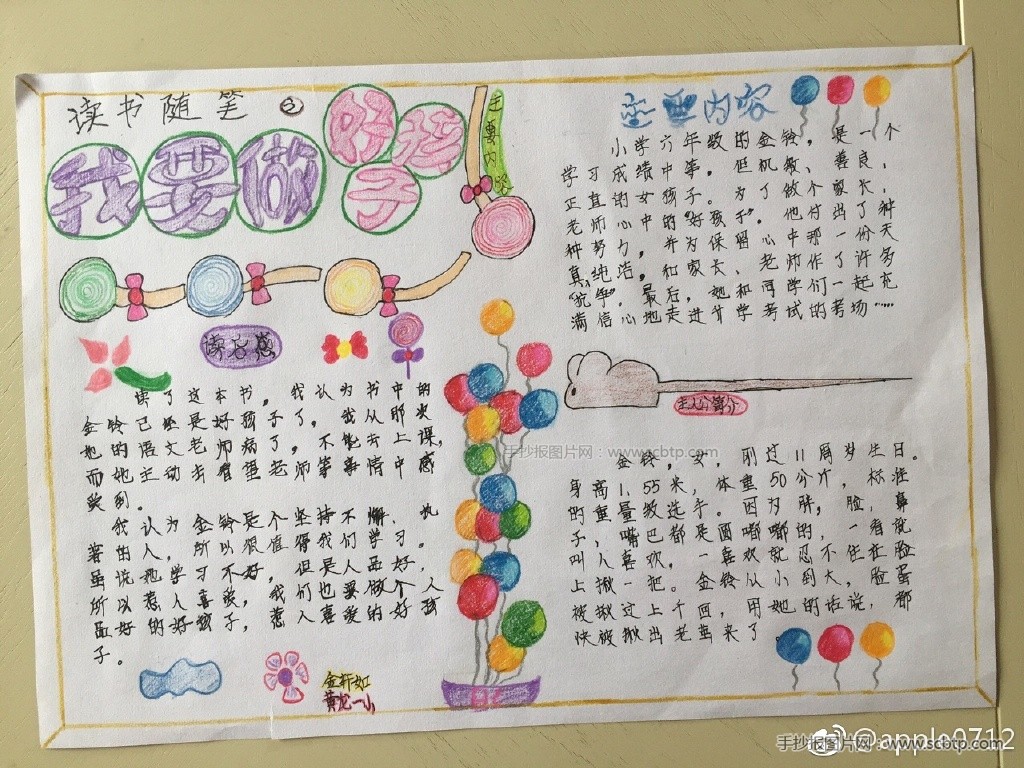 读书随笔
之
我要做
好孩子
主要内容
主要内容
小学六年级的金铃，是一个
学习成绩中等。但机敏、善良、
正直的女孩子。为了做个家长，
老师心中的"好孩子"。他付出了种
种努力，并为保留心中那一份天
真，纯洁，和家长、老师作了许多
"抗争"，最后，她和同学们一起充
满信心地走进升学考试的考场……
读后感
读了这本书，我认为书中的
金铃已经是好孩子了，我从那次
她的语文老师病了，不能去上课，
而她主动去看望老师等事情中感
受到。
我认为金铃是个坚持不懈、执
著的人，所以很值得我们学习。
虽说她学习不好，但是人品好，
所以惹人喜爱，我们也要做个人
品好的好孩子，惹人喜爱的好孩
子。
金轩如
黄龙一小
主人公简介
金铃，女，刚过11周岁生日。
身高1.55米，体重50公斤，标准
的重量级选手。因为胖，脸，鼻
子，嘴巴都是圆嘟嘟的，一看就
叫人喜欢，一喜欢就忍不住在脸
上揪一把。金铃从小到大，脸蛋
被揪过上千回，用她的话说，都
快被揪出老茧来了。
手抄报图片网：www.scbtp.com
@apple0712
手抄报图片网：www.scbtp.com